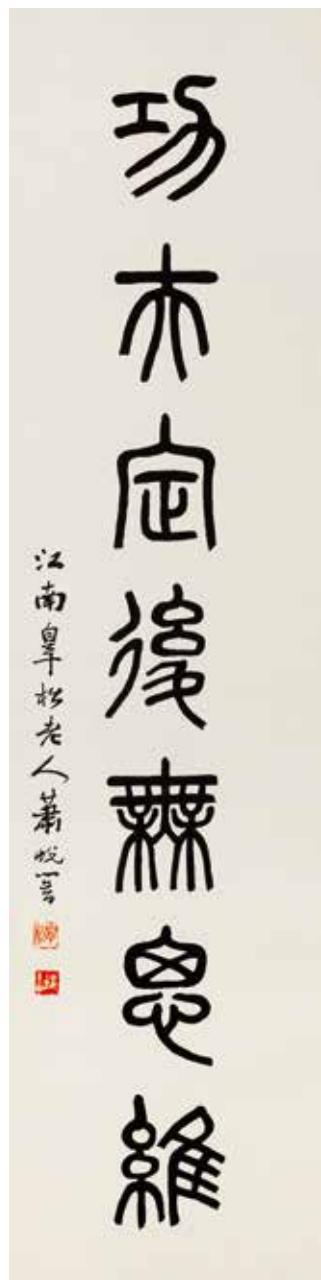 功夫定後無思維
江南皋松老人蕭蛻闇